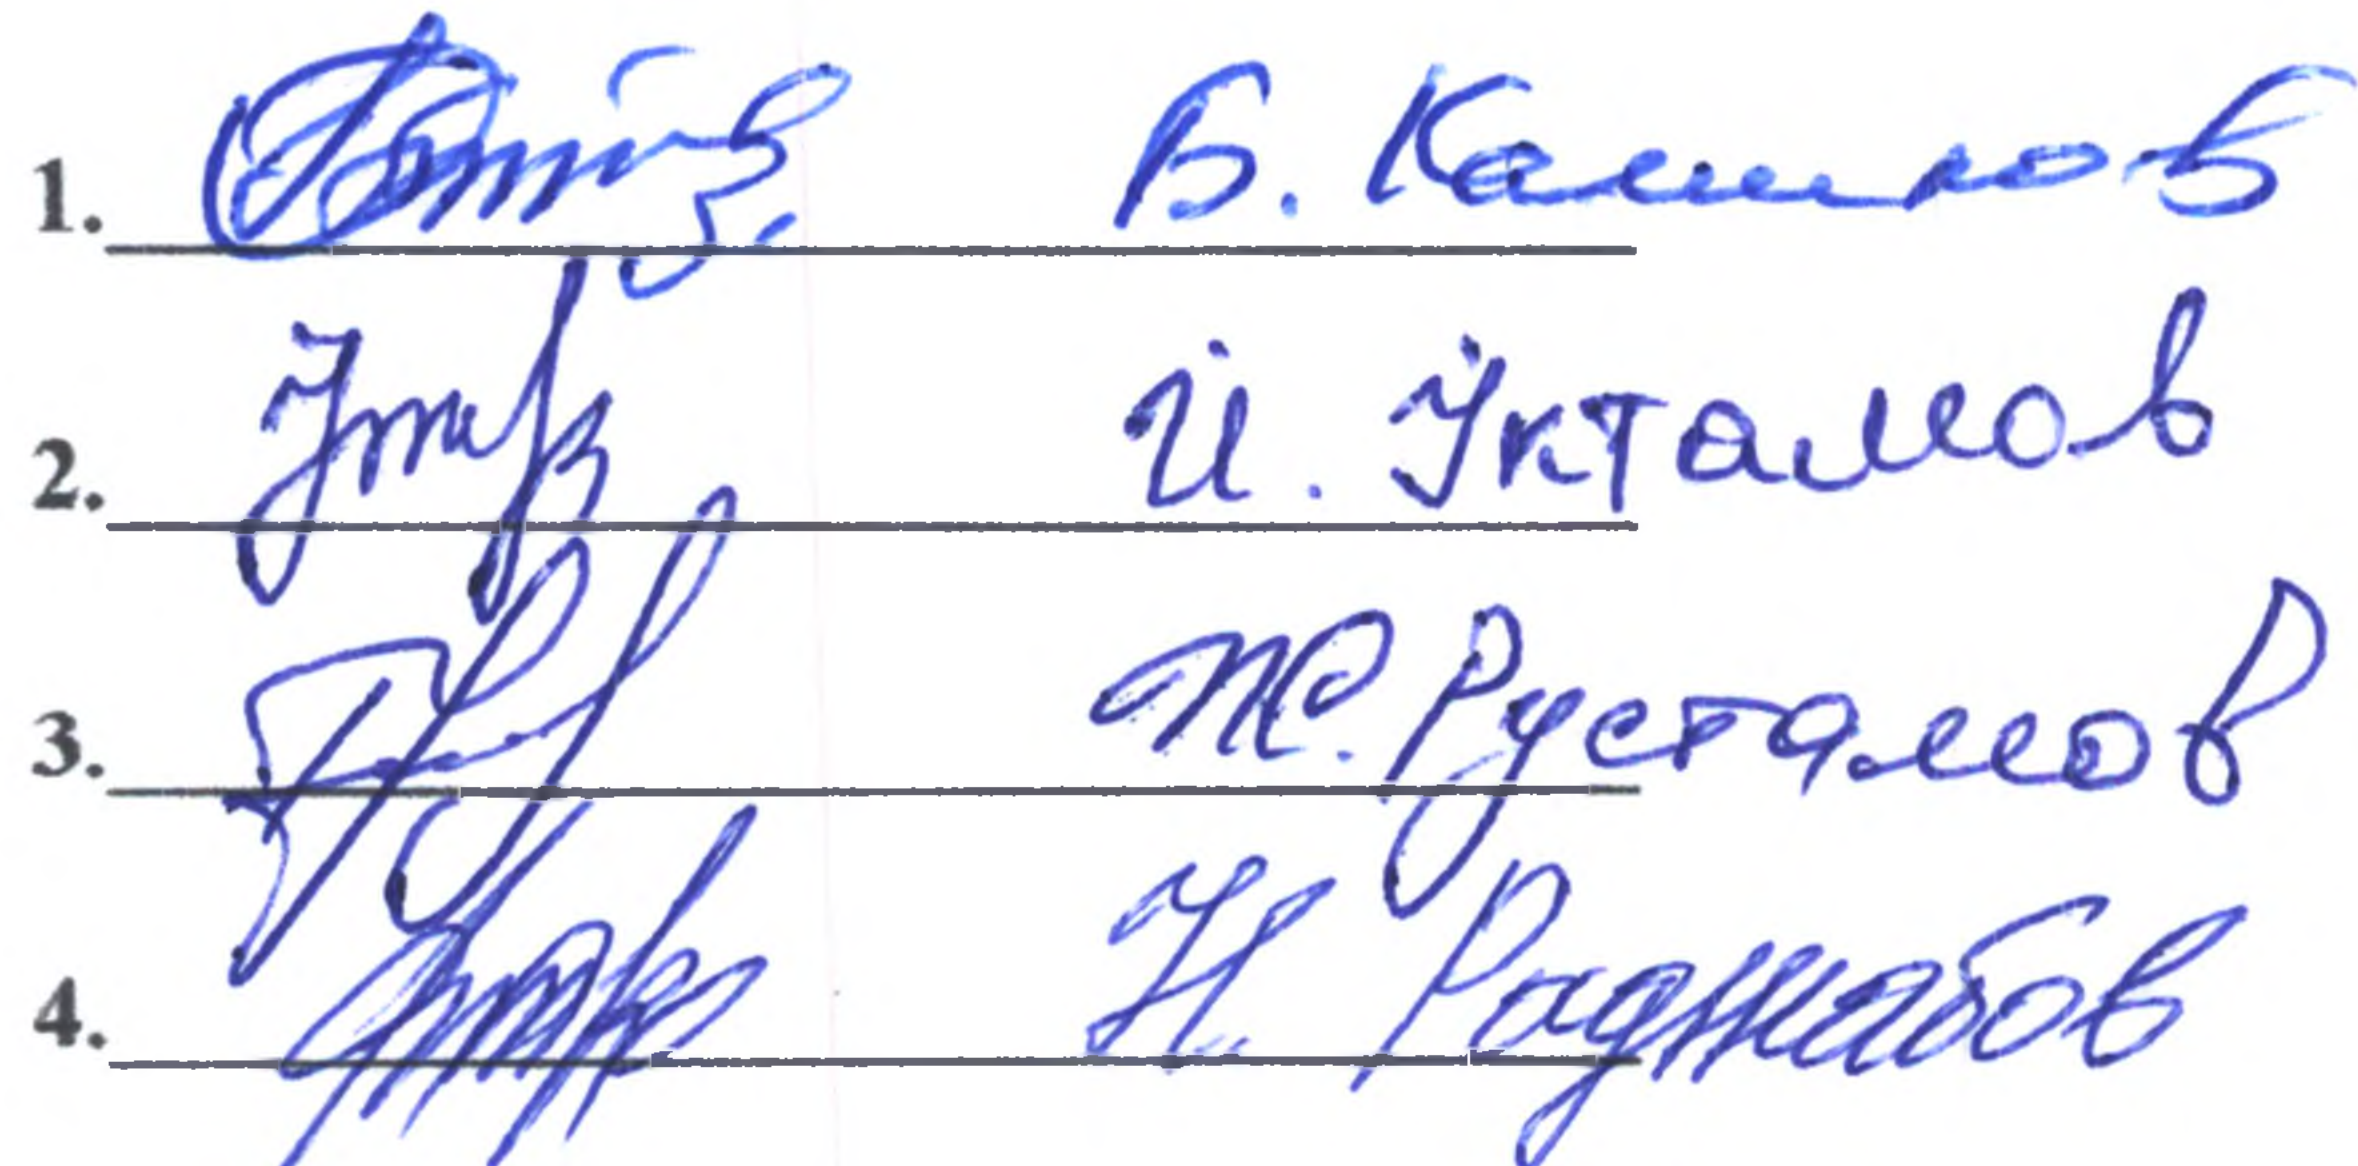 1. Б. Камилов
2. И. Ўктамов
3. Ж. Рустамов
4. Н. Раджабов